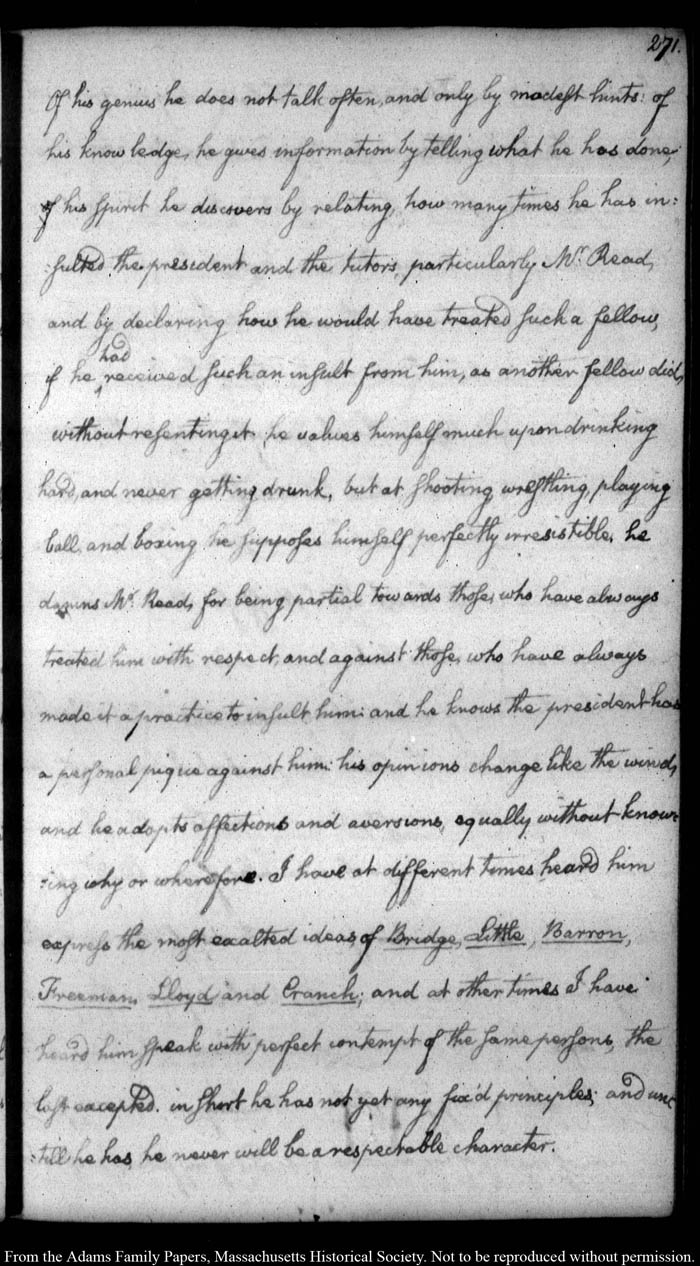 271.
Of his genius he does not talk often, and only by modest hints: of
his knowledge, he gives information by telling what he has done;
of his spirit he discovers by relating, how many times he has in:
:sulted the president and the tutors, particularly Mr. Read,
and by declaring how he would have treated such a fellow,
had
if he received such an insult from him, as another fellow did,
without resenting it. he values himself much upon drinking
hard, and never getting drunk, but at shooting, wrestling, playing
ball, and boxing he supposes himself perfectly irresistible. he
damns Mr. Read, for being partial towards those, who have always
treated him with respect, and against those, who have always
made it a practice to insult him: and he knows the president has
a personal pique against him: his opinions change like the wind,
and he adopts affections and aversions, equally without know:
:ing why or wherefore. I have at different times heard him
express the most exalted ideas, of Bridge, Little, Barron,
Freeman, Lloyd and Cranch; and at other times I have
heard him speak with perfect contempt of the same persons, the
last excepted. in short he has not yet any fix'd principles; and un:
:till he has, he never will be a respectable character.
From the Adams Family Papers, Massachusetts Historical Society. Not to be reproduced without permission.